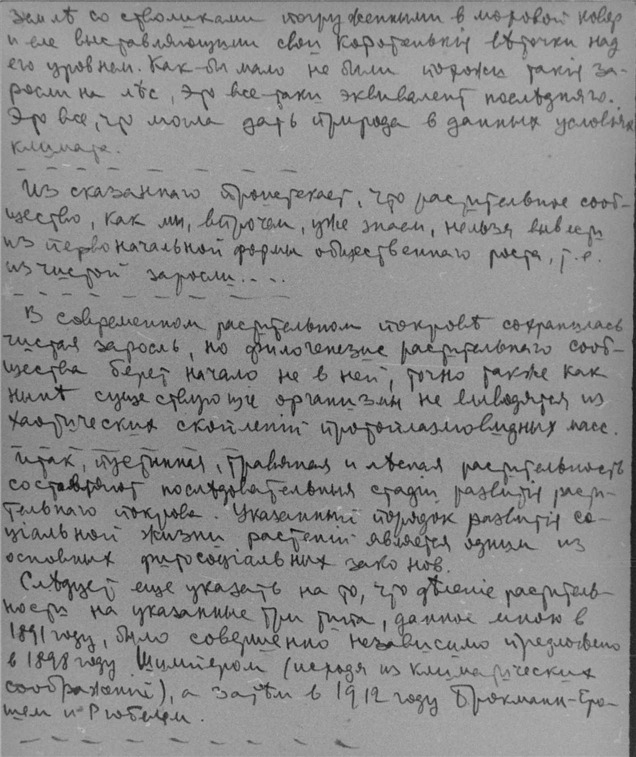 землѣ со стволиками погруженными в моховой ковер
и еле выставляющими свои коротенькія вѣточки над
его уровнем. Как-бы мало не были похожи такія за-
росли на лѣс, это все-таки эквивалент послѣдняго.
Это все, что могла дать природа в данных условіях
климата.
Из сказаннаго проистекает, что растительное сооб-
щество, как мы, впрочем, уже знаем, нельзя вывести
из первоначальной формы общественнаго роста, т.е.
из чистой заросли....
В современном растительном покровѣ сохранилась
чистая заросль, но филогенезис растительнаго сооб-
щества берет начало не в ней, точно также как
нынѣ существующіе организмы не выводятся из
хаотических скопленій протоплазмовидных масс.
Итак, пустынная, травяная и лѣсная растительность
составляют послѣдовательныя стадіи развитія расти-
тельнаго покрова. Указанный порядок развитія со-
ціальной жизни растеній является одним из
основных фитосоціальных законов.
Слѣдует еще указать на то, что дѣленіе раститель-
ности на указанные три типа, данное мною в
1891 году, было совершенно независимо предложено
в 1898 году Шимпером (исходя из климатических
соображеній), а затѣм в 1912 году Брокманн-Еро-
шем и Рюбелем.